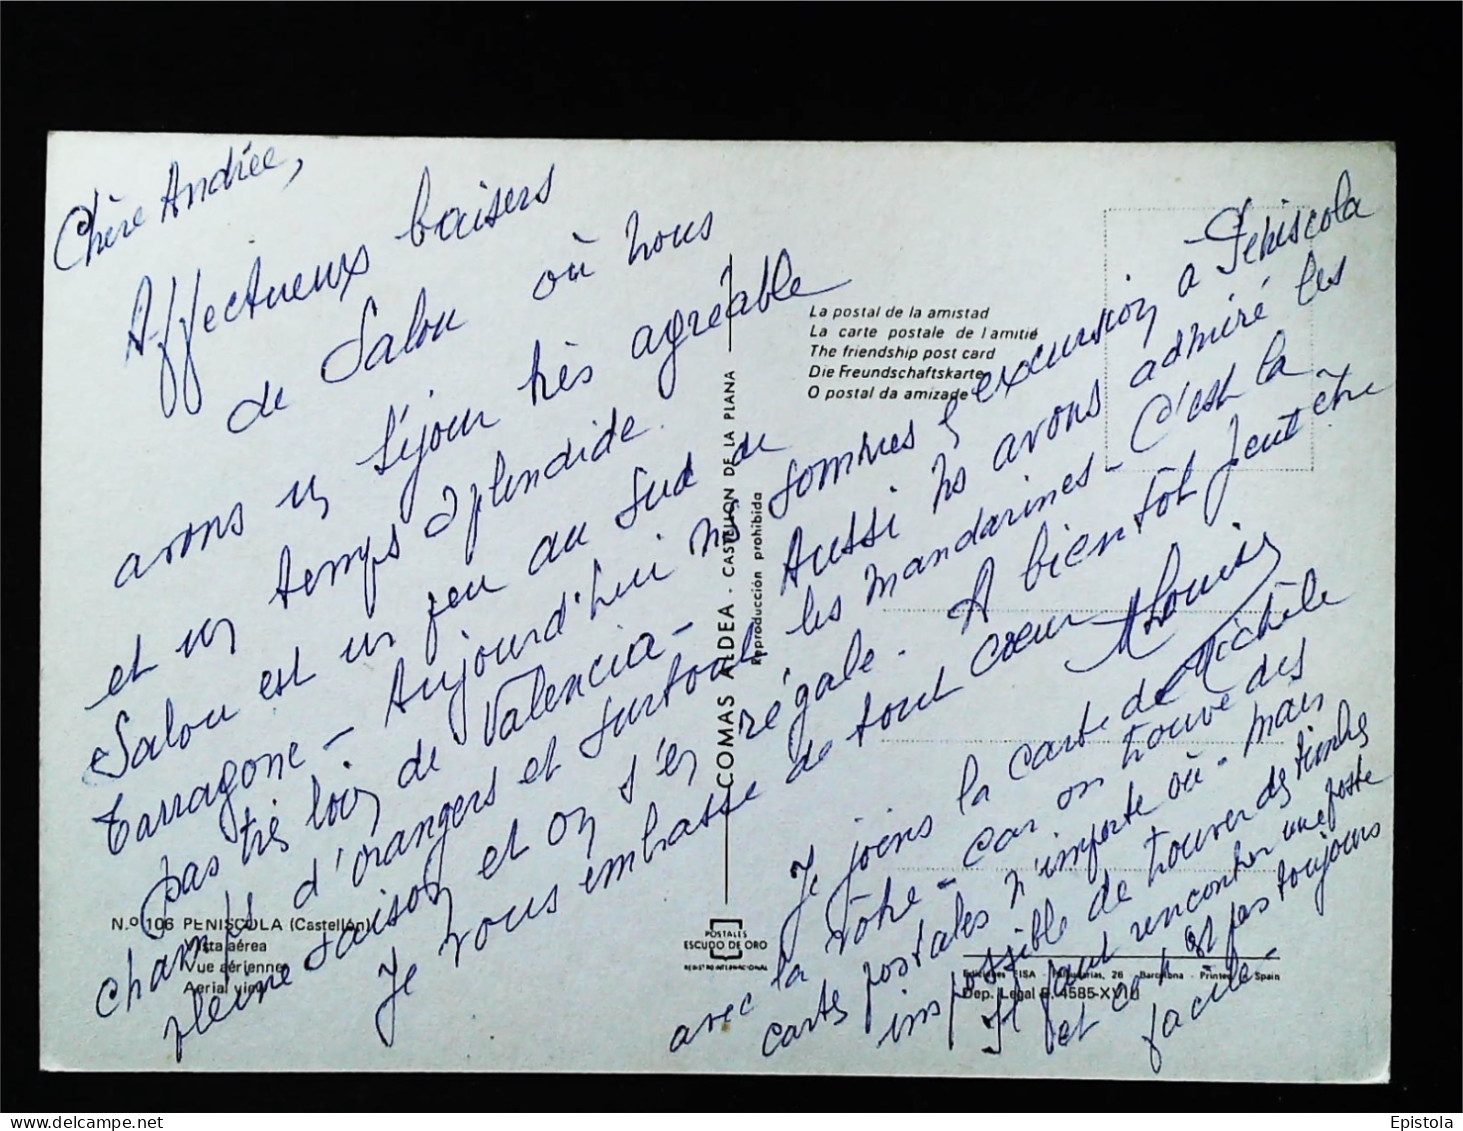 Chère Andrée,
Affectueux baisers
de Salou où nous
avons un séjour très agréable
et un temps splendide.
Salou est un peu au sud de
Tarragone - Aujourd'hui ns sommes en excursion à Peniscola
pas très loin de Valencia - Aussi ns avons admiré les
champs d'orangers et surtout les mandarines - C'est la
pleine saison et on s'en régale. A bientôt peut être
Je vous embrasse de tout coeur
MLouise
Je joins la carte de Michèle
avec la vôtre - car on trouve des
cartes postales n'importe où - mais
impossible de trouver des timbres
Il faut rencontrer une poste
et ce n'est pas toujours
facile -
La postal de la amistad
La carte postale de l'amitié
The friendship post card
Die Freundschaftskarte
O postal da amizade
COMAS ALDEA - CASTELLON DE LA PLANA
Reproducción prohibida
N.º 106 PEÑISCOLA (Castellón)
Vista aérea
Vue aérienne
Aerial view
POSTALES
ESCUDO DE ORO
REGISTRO INTERNACIONAL
Ediciones FISA 26 Barcelona - Printed in Spain
Dep. Legal B. 4585-XVIII
Epistola